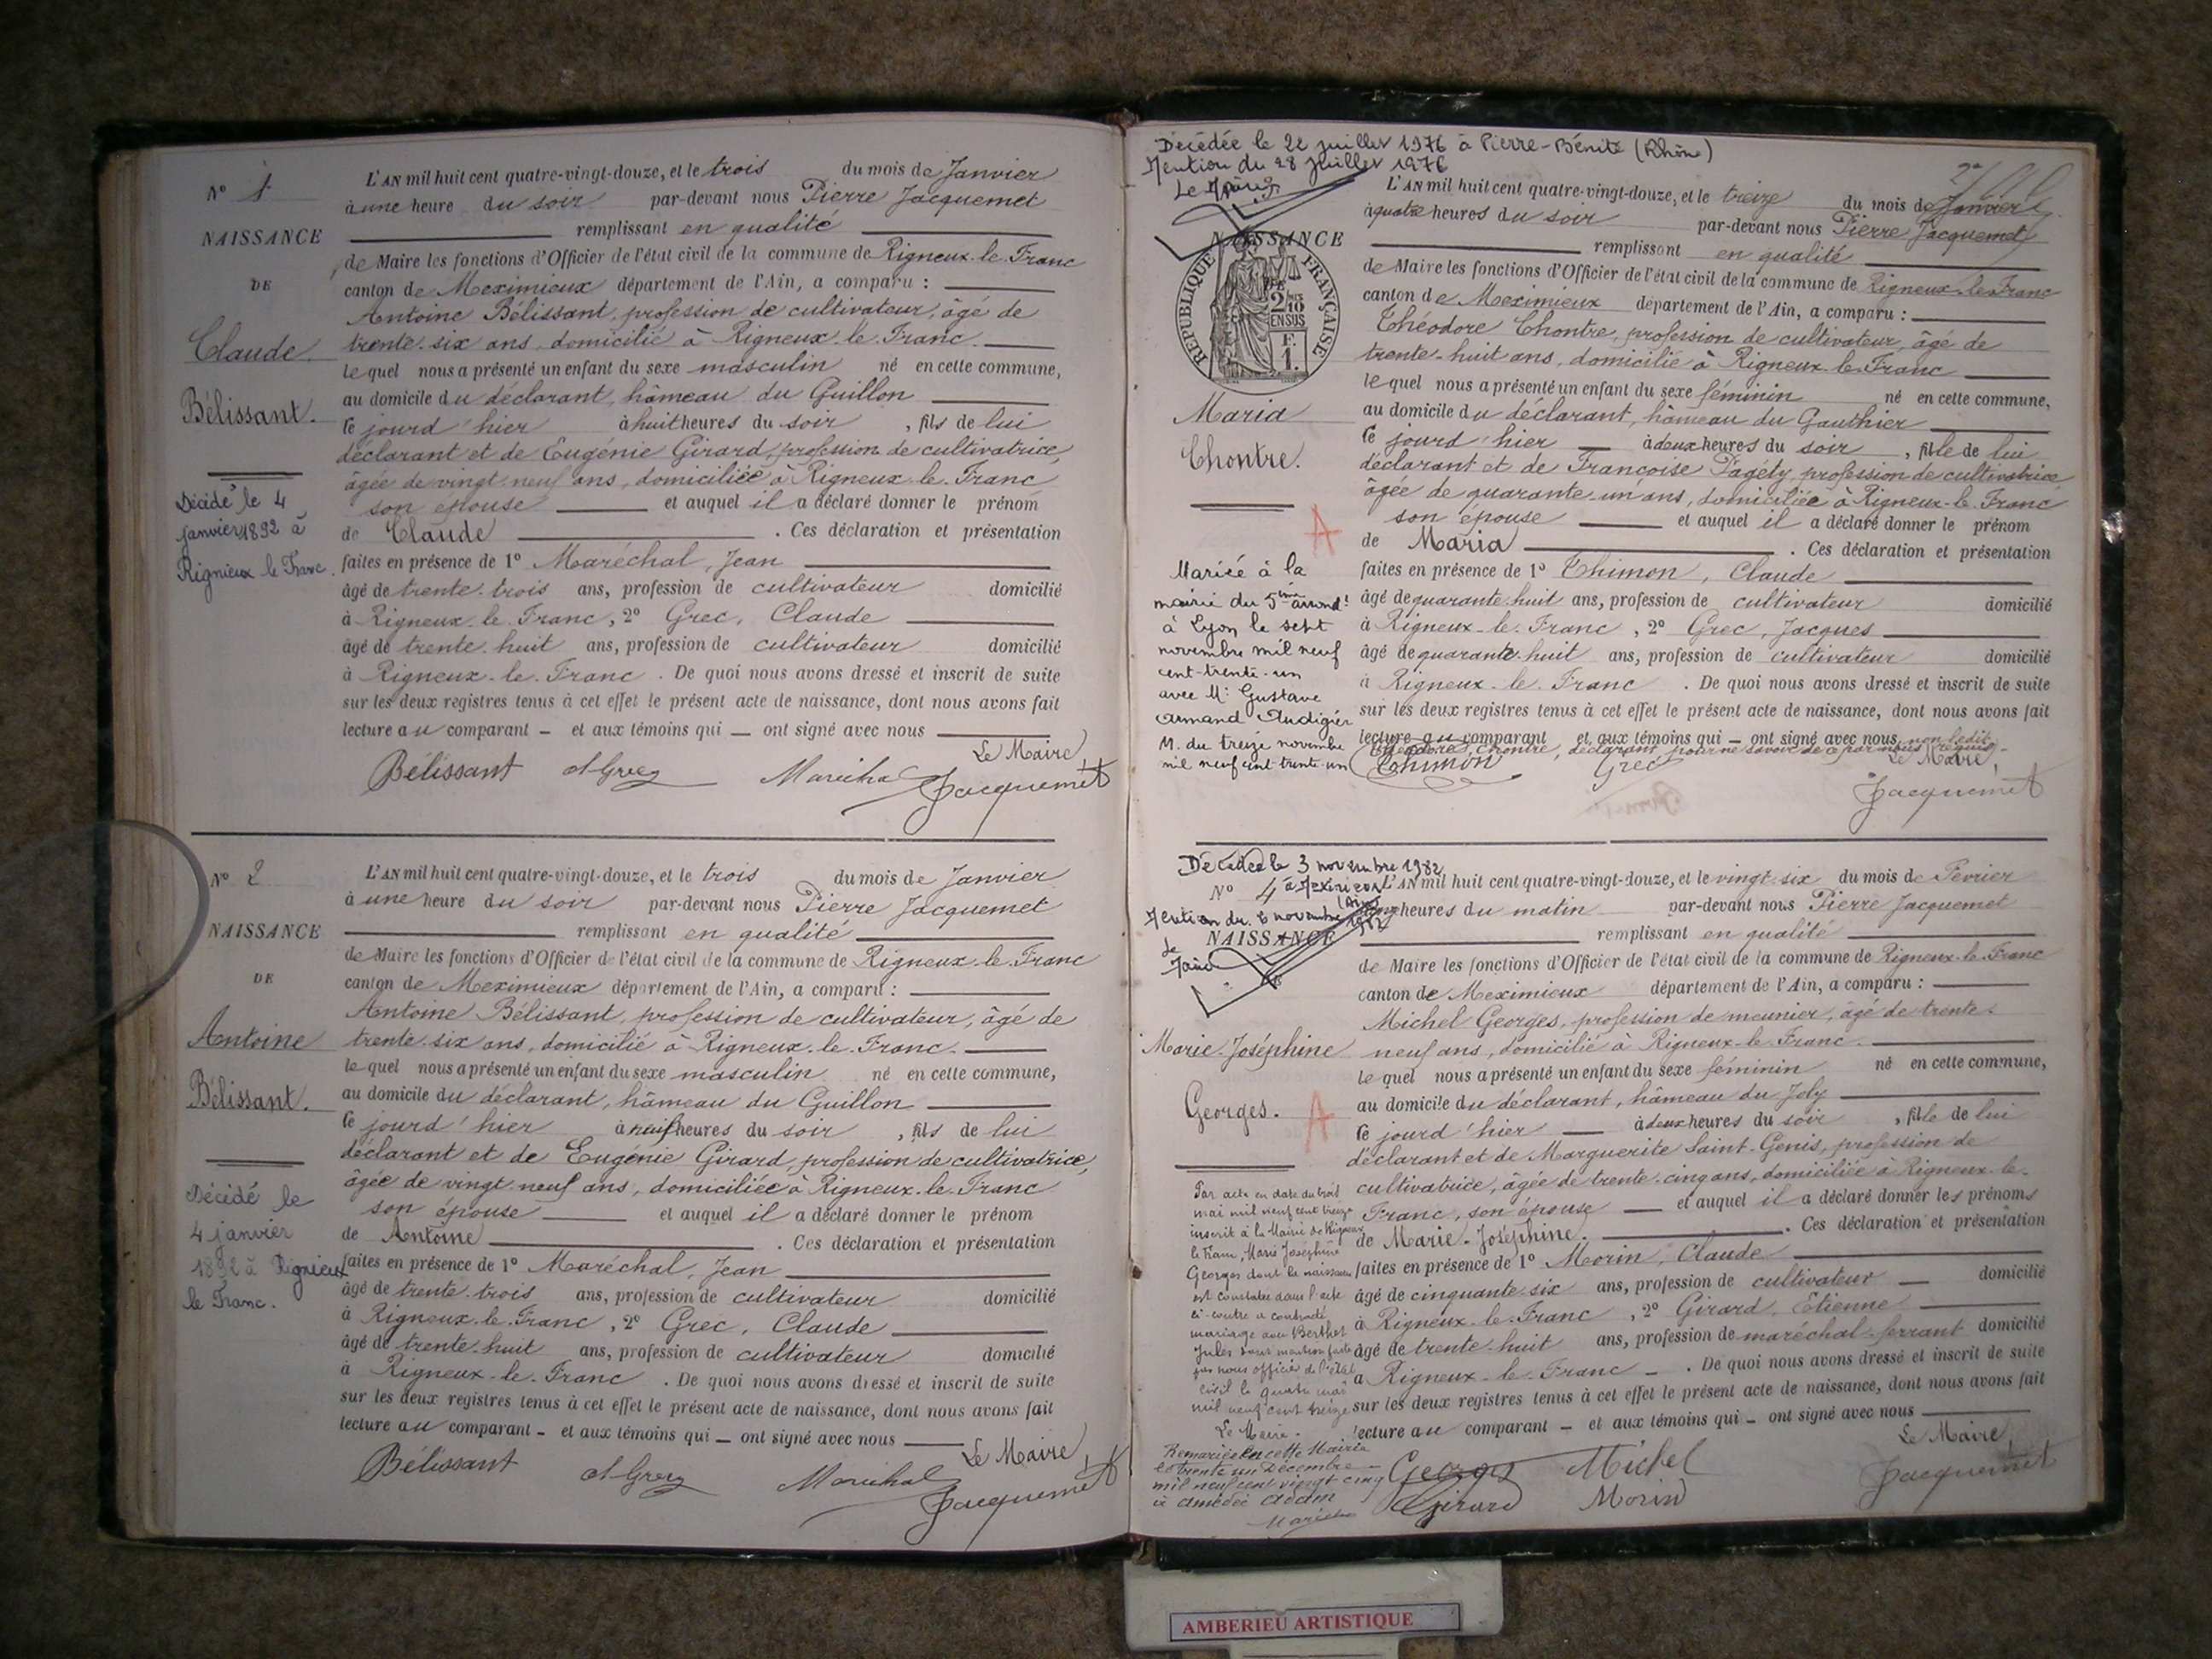 N° 1
NAISSANCE
DE
Claude
Bélissant.
Décédé le 4
janvier 1892 à
Rignieux le Franc.
L'AN mil huit cent quatre-vingt-douze, et le trois du mois de Janvier
à une heure du soir par-devant nous Pierre Jacquemet
remplissant en qualité
de Maire les fonctions d'Officier de l'état civil de la commune de Rigneux-le-Franc
canton de Meximieux département de l'Ain, a comparu :
Antoine Bélissant, profession de cultivateur, âgé de
trente-six ans, domicilié à Rigneux-le-Franc.
lequel nous a présenté un enfant du sexe masculin né en cette commune,
au domicile du déclarant, hâmeau du Guillon
le jourd'hier à huit heures du soir, fils de lui
déclarant et de Eugénie Girard, profession de cultivatrice,
âgée de vingt-neuf ans, domiciliée à Rigneux-le-Franc
son épouse et auquel il a déclaré donner le prénom
de Claude. Ces déclaration et présentation
faites en présence de 1° Maréchal, Jean
âgé de trente-trois ans, profession de cultivateur domicilié
à Rigneux-le-Franc, 2° Grec, Claude
âgé de trente-huit ans, profession de cultivateur domicilié
à Rigneux-le-Franc. De quoi nous avons dressé et inscrit de suite
sur les deux registres tenus à cet effet le présent acte de naissance, dont nous avons fait
lecture au comparant - et aux témoins qui - ont signé avec nous
Le Maire,
Bélissant Maréchal Jacquemet
N° 2
NAISSANCE
DE
Antoine
Bélissant.
Décédé le
4 janvier
1892 à Rignieux
le Franc.
L'AN mil huit cent quatre-vingt-douze, et le trois du mois de Janvier
à une heure du soir par-devant nous Pierre Jacquemet
remplissant en qualité
de Maire les fonctions d'Officier de l'état civil de la commune de Rigneux-le-Franc
canton de Meximieux département de l'Ain, a comparu :
Antoine Bélissant, profession de cultivateur, âgé de
trente-six ans, domicilié à Rigneux-le-Franc.
lequel nous a présenté un enfant du sexe masculin né en cette commune,
au domicile du déclarant, hâmeau du Guillon
le jourd'hier à neuf heures du soir, fils de lui
déclarant et de Eugénie Girard, profession de cultivatrice,
âgée de vingt-neuf ans, domiciliée à Rigneux-le-Franc
son épouse et auquel il a déclaré donner le prénom
de Antoine. Ces déclaration et présentation
faites en présence de 1° Maréchal, Jean
âgé de trente-trois ans, profession de cultivateur domicilié
à Rigneux-le-Franc, 2° Grec, Claude
âgé de trente-huit ans, profession de cultivateur domicilié
à Rigneux-le-Franc. De quoi nous avons dressé et inscrit de suite
sur les deux registres tenus à cet effet le présent acte de naissance, dont nous avons fait
lecture au comparant - et aux témoins qui - ont signé avec nous
Le Maire,
Bélissant Maréchal Jacquemet
Décédée le 22 juillet 1976 à Pierre-Bénite (Rhône)
Mention du 28 juillet 1976
Le Maire
NAISSANCE
RÉPUBLIQUE FRANÇAISE
2/10
EN SUS
F.
1.
Maria
Chontre.
A
Mariée à la
mairie du 5ème arrondt
à Lyon le sept
novembre mil neuf
cent-trente-un
avec Mr Gustave
Armand Audigier
M. du treize novembre
mil neuf cent trente-un
L'AN mil huit cent quatre-vingt-douze, et le treize du mois de Janvier
à quatre heures du soir par-devant nous Pierre Jacquemet
remplissant en qualité
de Maire les fonctions d'Officier de l'état civil de la commune de Rigneux-le-Franc
canton de Meximieux département de l'Ain, a comparu :
Théodore Chontre, profession de cultivateur, âgé de
trente-huit ans, domicilié à Rigneux-le-Franc
lequel nous a présenté un enfant du sexe féminin né en cette commune,
au domicile du déclarant, hâmeau du Gauthier
le jourd'hier à deux heures du soir, fille de lui
déclarant et de Françoise Pagéty, profession de cultivatrice
âgée de quarante-un ans, domiciliée à Rigneux-le-Franc
son épouse et auquel il a déclaré donner le prénom
de Maria. Ces déclaration et présentation
faites en présence de 1° Thimon, Claude
âgé de quarante-huit ans, profession de cultivateur domicilié
à Rigneux-le-Franc, 2° Grec, Jacques
âgé de quarante-huit ans, profession de cultivateur domicilié
à Rigneux-le-Franc. De quoi nous avons dressé et inscrit de suite
sur les deux registres tenus à cet effet le présent acte de naissance, dont nous avons fait
lecture au comparant et aux témoins qui - ont signé avec nous, non ledit
Théodore Chontre, déclarant pour ne savoir de ce par nous requis.
Le Maire,
Thimon Grec Jacquemet
Décédée le 3 novembre 1982
N° 4 à Meximieux (Ain)
Mention du 6 novembre 1982
NAISSANCE
Le Maire
Marie-Joséphine
Georges.
A
Par acte en date du trois
mai mil neuf cent treize
inscrit à la Mairie de Rigneux
le Franc, Marie Joséphine
Georges dont la naissance
est constatée dans l'acte
ci-contre a contracté
mariage avec Berthet
Jules mention faite
par nous officier de l'état
civil le quatre mai
mil neuf cent treize
Le Maire.
Remariée en cette Mairie
le trente un Décembre
mil neuf cent vingt cinq
à Amédée Adam
L'AN mil huit cent quatre-vingt-douze, et le vingt-six du mois de Février
heures du matin par-devant nous Pierre Jacquemet
remplissant en qualité
de Maire les fonctions d'Officier de l'état civil de la commune de Rigneux-le-Franc
canton de Meximieux département de l'Ain, a comparu :
Michel Georges, profession de meunier, âgé de trente-
neuf ans, domicilié à Rigneux-le-Franc.
lequel nous a présenté un enfant du sexe féminin né en cette commune,
au domicile du déclarant, hâmeau du Joly
le jourd'hier à deux heures du soir, fille de lui
déclarant et de Marguerite Saint-Genis, profession de
cultivatrice, âgée de trente-cinq ans, domiciliée à Rigneux-le-
Franc, son épouse et auquel il a déclaré donner les prénoms
de Marie-Joséphine. Ces déclaration et présentation
faites en présence de 1° Morin, Claude
âgé de cinquante-six ans, profession de cultivateur domicilié
à Rigneux-le-Franc, 2° Girard, Etienne
âgé de trente-huit ans, profession de maréchal-ferrant domicilié
à Rigneux-le-Franc. De quoi nous avons dressé et inscrit de suite
sur les deux registres tenus à cet effet le présent acte de naissance, dont nous avons fait
lecture au comparant - et aux témoins qui - ont signé avec nous
Le Maire,
Georges Michel Jacquemet
Girard Morin
AMBERIEU ARTISTIQUE